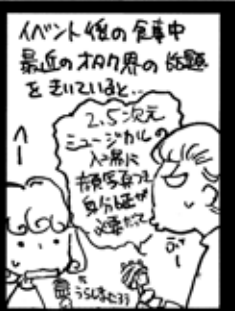 イベント後の食事中
最近のオタク界の話題
をきいていると‥
2.5次元
ミュージカルの
入場に
顔写真つき
身分証が
必要だって
へー